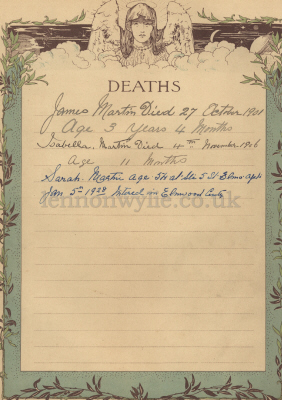 DEATHS
James Martin Died 27 October 1901
Age 3 Years 4 Months
Isabella Martin Died 4th November 1906
Age 11 Months
Sarah Martin age 54 at Ste 5 St Elmo Apts
Jan 5th 1938 Intered in Elmwood Cmty
lennonwylie.co.uk